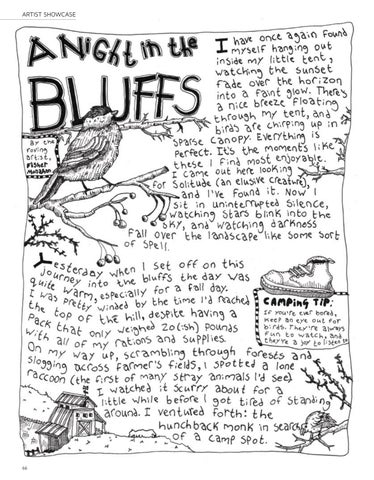 ARTIST SHOWCASE
A Night in the
BLUFFS
By the
roving
artist,
I have once again found
myself hanging out
inside my little tent,
watching the sunset
fade over the horizon
into a faint glow. There's
a nice breeze floating
through my tent, and
birds are chirping up in
sparse canopy. Everything is
perfect. It's the moments like
these I find most enjoyable.
I came out here looking
for solitude (an elusive creature),
and I've found it. Now I
sit in uninterrupted silence,
watching stars blink into the
sky, and watching darkness
fall over the landscape like some sort
of spell.
Yesterday when I set off on this
journey into the bluffs the day was
quite warm, especially for a fall day.
I was pretty winded by the time I'd reached
the top of the hill, despite having a
pack that only weighed 20(ish) pounds
with all of my rations and supplies.
On my way up, scrambling through forests and
slogging across farmer's fields, I spotted a lone
raccoon (the first of many stray animals I'd see)
I watched it scurry about for a
little while before I got tired of standing
around. I ventured forth: the
hunchback monk in search
of a camp spot.
CAMPING TIP:
If you're ever bored,
keep an eye out for
birds. They're always
fun to watch, and
they're a joy to listen to
66